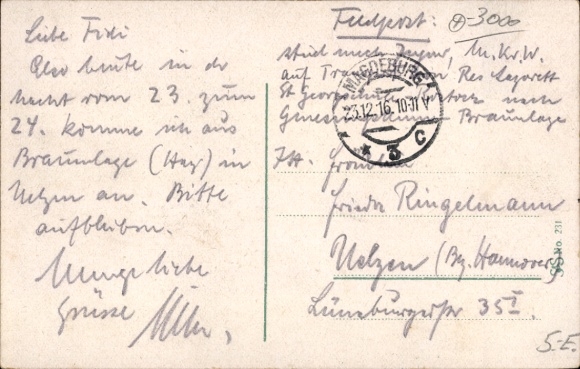 Liebe Fidi
Also heute in der
nacht vom 23. zum
24. komme ich aus
Braunlage (Harz) in
Uelzen an. Bitte
aufbleiben.
liebe
Grüsse
Feldpost:
3000
auf Res Lazarett
St Georg nach
Braunlage
MAGDEBURG
23.12.16. 10-11 V
* 3 C
Frieda Ringelmann
Uelzen (Bz. Hannover)
Lüneburgerstr 35I.
No. 231
S-E.